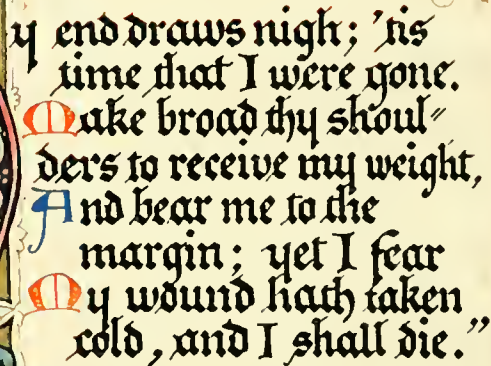 y end draws nigh; 'tis
time that I were gone.
Make broad thy shoul"
ders to receive my weight,
And bear me to the
margin; yet I fear
My wound hath taken
cold, and I shall die."